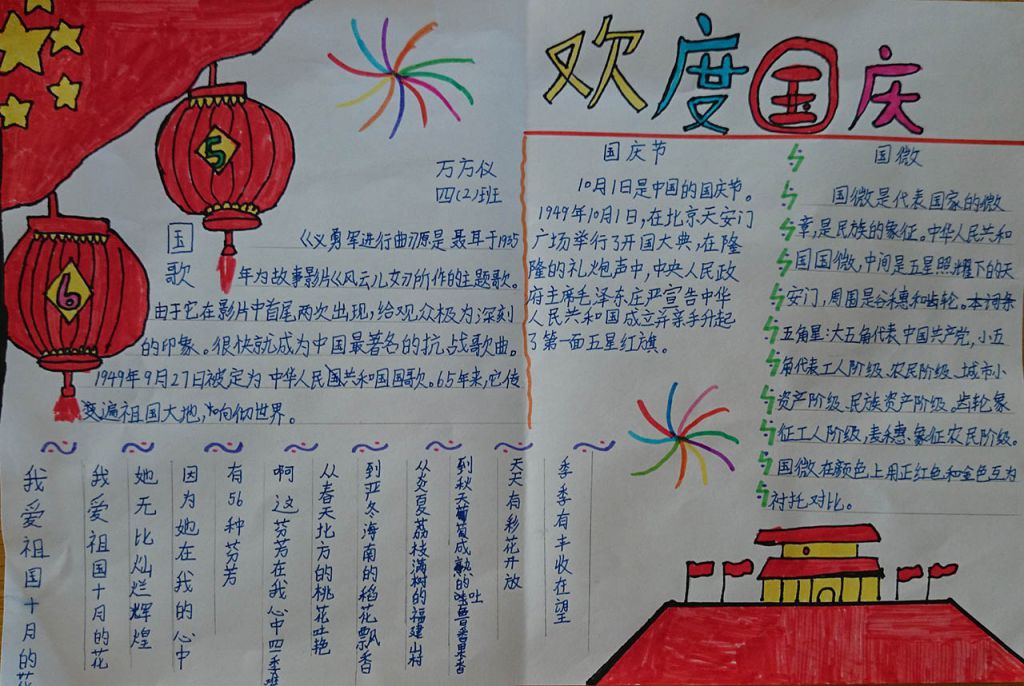 欢度国庆
万方仪
四(2)班
5
6
国歌
《义勇军进行曲》原是聂耳于1935
年为故事影片《风云儿女》所作的主题歌。
由于它在影片中首尾两次出现,给观众极为深刻
的印象。很快就成为中国最著名的抗战歌曲。
1949年9月27日被定为中华人民共和国国歌。65年来,它传
遍祖国大地,响彻世界。
国庆节
10月1日是中国的国庆节。
1949年10月1日,在北京天安门
广场举行了开国大典,在隆
隆的礼炮声中,中央人民政
府主席毛泽东庄严宣告中华
人民共和国成立并亲手升起
了第一面五星红旗。
国微
国微是代表国家的微
章,是民族的象征。中华人民共和
国国微,中间是五星照耀下的天
安门,周围是谷穗和齿轮。本词条
五角星:大五角代表中国共产党,小五
角代表工人阶级、农民阶级、城市小
资产阶级、民族资产阶级。齿轮象
征工人阶级,麦穗、象征农民阶级。
国微在颜色上用正红色和金色互为
衬托对比。
我爱祖国十月的花
我爱祖国十月的花
她无比灿烂辉煌
因为她在我的心中
有56种芬芳
啊这芬芳在我心中四季
从春天北方的桃花吐艳
到严冬海南的稻花飘香
从炎夏荔枝满树的福建山村
到秋天葡萄成熟的吐鲁番果香
天天有彩花开放
季季有丰收在望